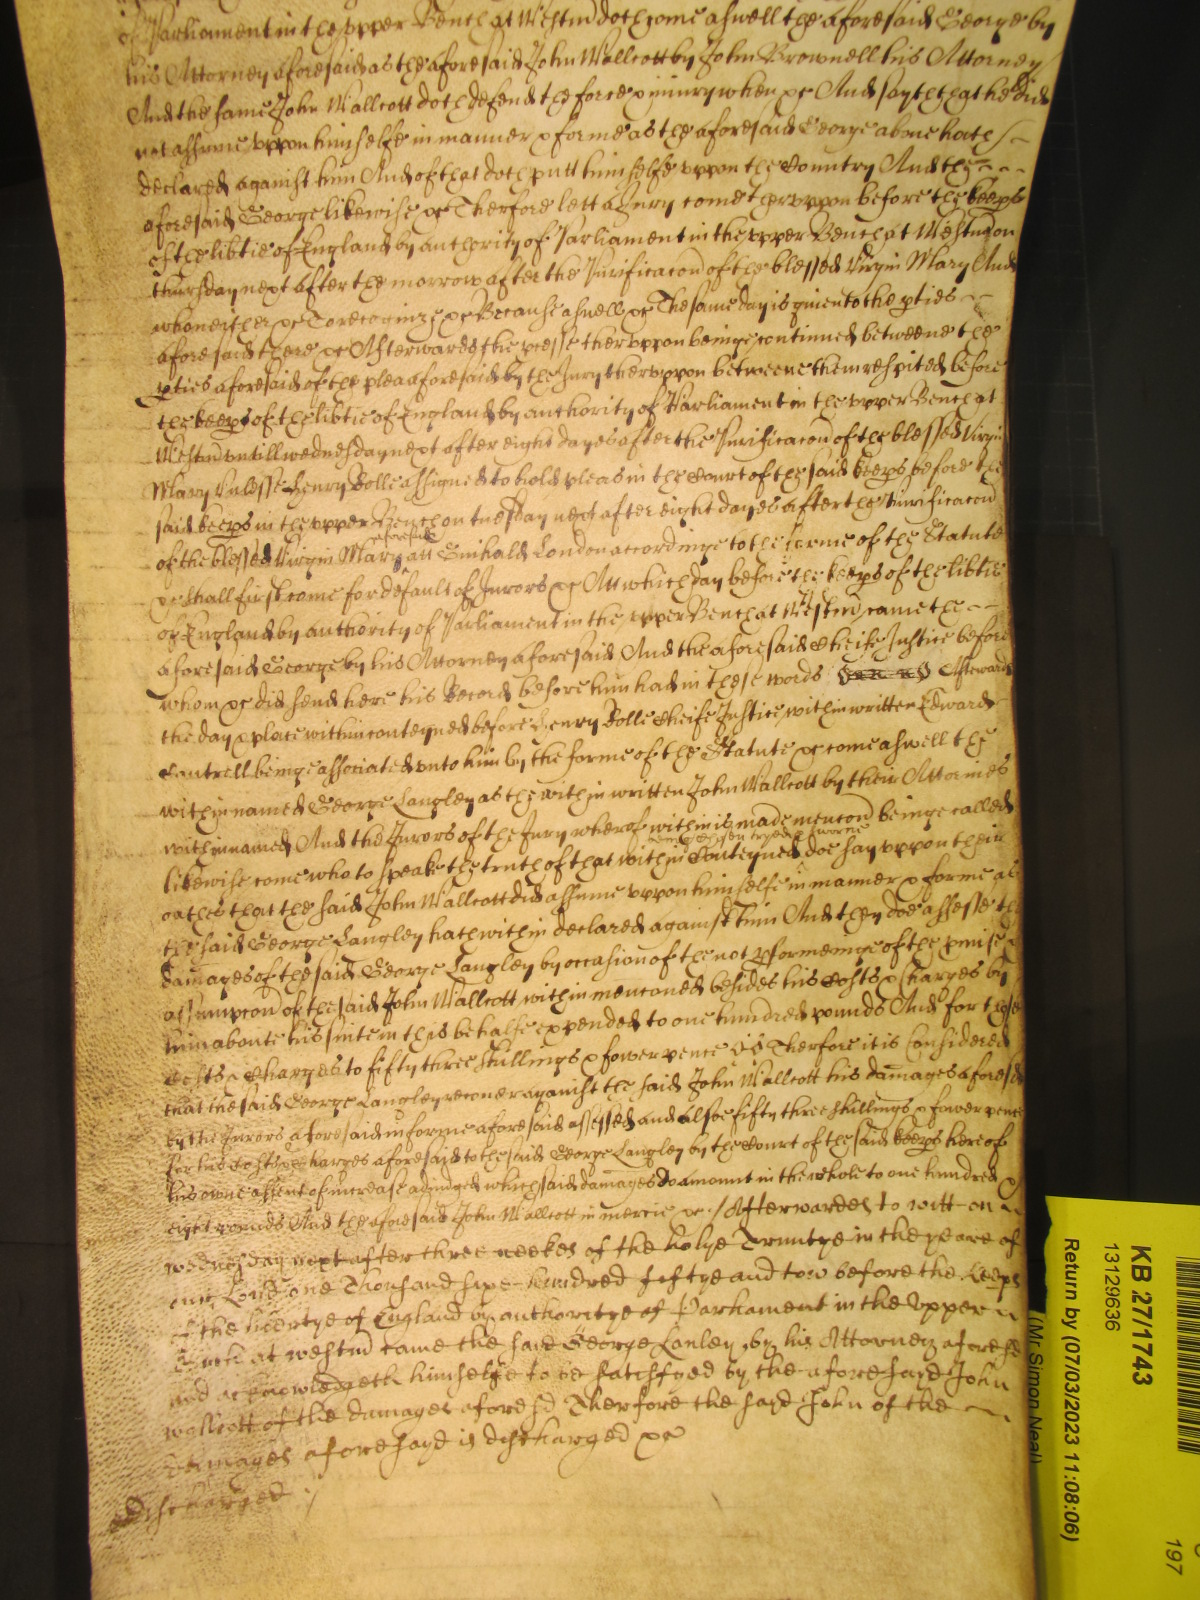 of Parliament in the upper Bench at Westm doth come aswell the aforesaid George by
his Attorney aforesaid as the aforesaid John Wallcott by John Brownell his Attorney
And the same John Wallcott doth defend the force & iniury when &c And sayth that he did
not assume vppon himselfe in manner & forme as the aforesaid George aboue hath
declared against him And of that doth putt himselfe vppon the Country And the
aforesaid George likewise &c Therfore lett a Jury come thervppon before the keeps
of the libtie of England by authority of Parliament in the vpper Bench at Westm on
thursday next after the morrow after the Purificacon of the blessed Virgin Mary And
who neither &c To recognize &c Because aswell &c The same day is giuen to the pties
aforesaid there &c Afterwards the pcesse thervppon beinge continued betweene the
pties aforesaid of the plea aforesaid by the Jury thervppon betweene them respited before
the keeps of the libtie of England by authority of Parliament in the vpper Bench at
Westm vntill wednesday next after eight dayes after the Purificacon of the blessed Virgin
Mary Vnlesse Henry Rolle assigned to hold pleas in the Court of the said keeps before the
said keeps in the vpper Bench on tuesday next after eight dayes after the Purificacon
of the blessed Virgin Mary aforesaid att Guihald London accordinge to the forme of the Statute
&c shall first come for default of Jurors &c Att which day before the keeps of the libtie
of England by authority of Parliament in the vpper Bench at Westm came the
aforesaid George by his Attorney aforesaid And the aforesaid Cheife Justice before
whom &c did send here his Record before him had in these words Afterwards
the day & place within conteyned before Henry Rolle Cheife Justice within written Edward
Cantrell beinge associated vnto him by the forme of the Statute &c come aswell the
within named George Langley as the within written John Wallcott by their Attornies
within named And the Jurors of the Jury wherof within is made mencon beinge called
likewise come who to speake the truth of that within Conteyned beinge chosen tryed & sworne doe say vppon their
oathes that the said John Wallcott did assume vppon himselfe in manner & forme as
the said George Langley hath within declared against him And they doe assesse the
damages of the said George Langley by occasion of the not pformeinge of the pmise &
assumpcon of the said John Wallcott within menconed besides his Costs & Charges by
him aboute his suite in this behalfe expended to one hundred pounds And for those
Costs & Charges to fifty three shillings & fower pence Therfore it is Considered
that the said George Langley recouer against the said John Wallcott his damages aforesd
by the Jurors aforesaid in forme aforesaid assessed and alsoe fifty three shillings & fower pence
for his Costs & Charges aforesaid to the said George Langley by the Court of the said keeps here of
his owne assent of increase adiudged which said damages do amount in the whole to one hundred &
eight pounds And the aforesaid John Wallcott in mercie &c / Afterwardes to witt on
wednesday next after three weekes of the holye Trinitye in the yeare of
our Lord one Thousand sixe hundred fiftye and tow before the keeps
of the libertye of England by authoritye of Parliament in the Vpper
Bench at westm came the said George Lanley by his Attorney aforesd
and acknowledgeth himselfe to be sattisfyed by the aforesayd John
wallcott of the damages aforesd Therfore the sayd John of the
damages aforesayd is discharged &c
discharged
KB 27/1743
13129636
Return by (07/03/2023 11:08:06)
(Mr Simon Neal)
197